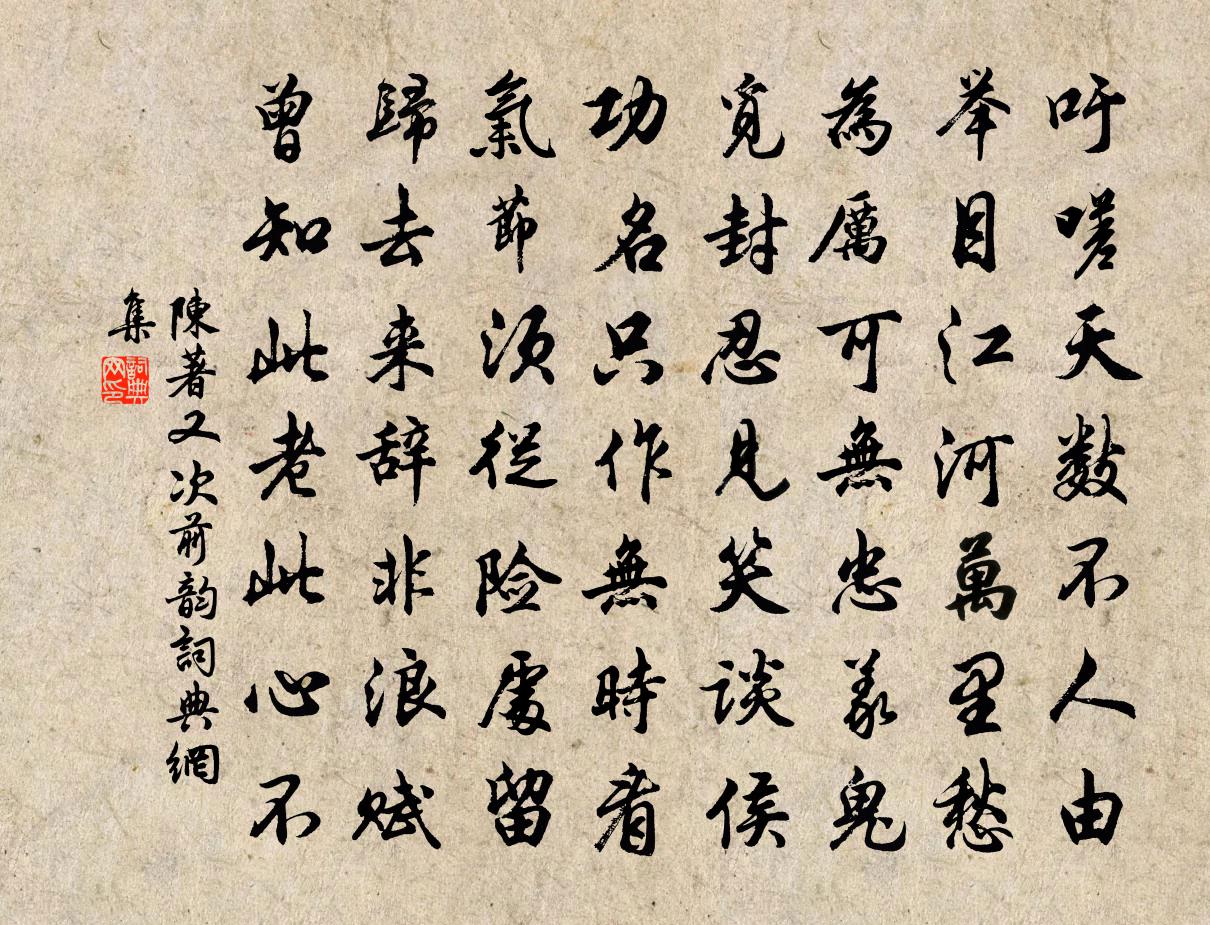 吁嗟天数不人由
举目江河萬里愁
為厲可無忠義鬼
覓封忍見笑谈侯
功名只作無時看
氣節須従险處留
歸去来辞非浪赋
曾知此老此心不
陳著又次前韵詞典網
集
詞典网印